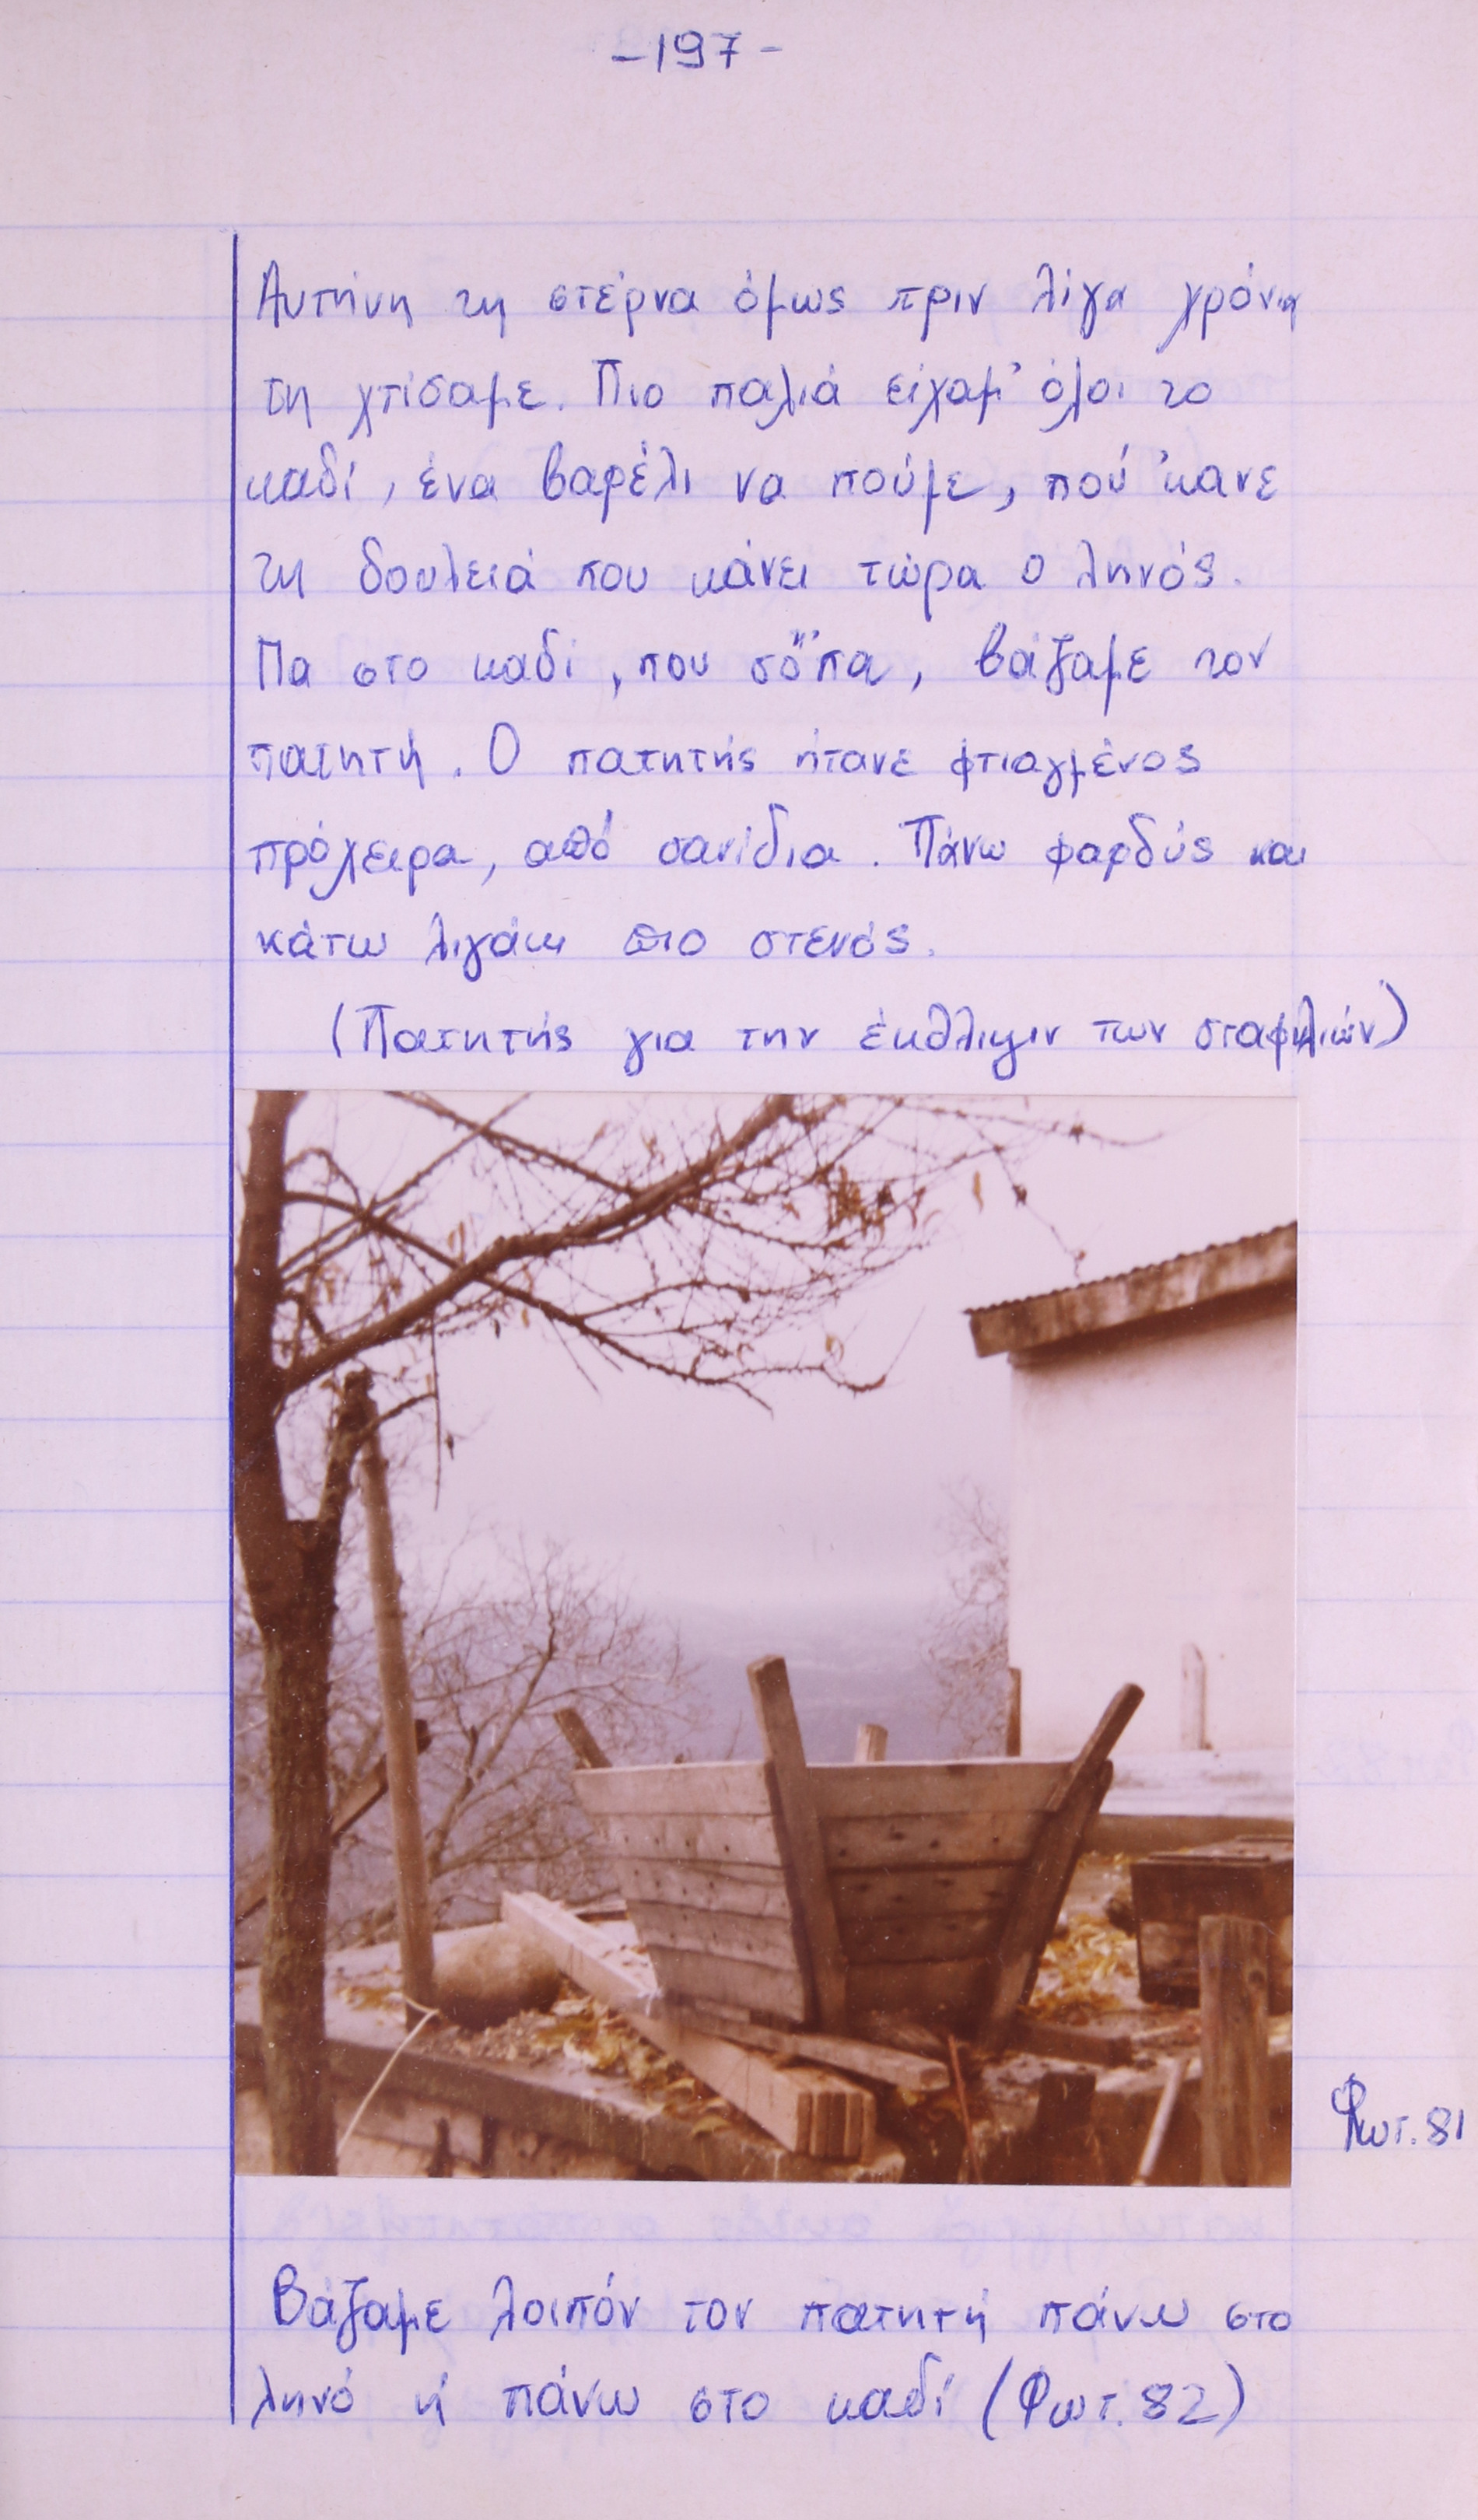 -197-
Αυτήνη τη στέρνα όμως πριν λίγα χρόνια
τη χτίσαμε. Πιο παλιά είχαμ' όλοι το
καδί, ένα βαρέλι να πούμε, πού 'κανε
τη δουλειά που κάνει τώρα ο ληνός.
Πα στο καδί, που σό"πα, βάζαμε τον
πατητή. Ο πατητής ήτανε φτιαγμένος
πρόχειρα, από σανίδια. Πάνω φαρδύς και
κάτω λιγάκι πιο στενός.
(Πατητής για την έκθλιψιν των σταφυλιών)
Φωτ. 81
Βάζαμε λοιπόν τον πατητή πάνω στο
ληνό ή πάνω στο καδί (Φωτ. 82)